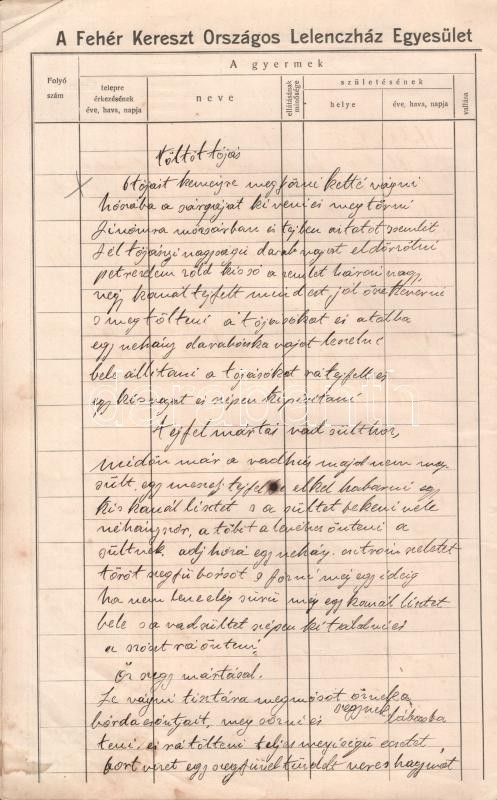 A Fehér Kereszt Országos Lelenczház Egyesület
A gyermek
Folyó szám
telepre érkezésének éve, hava, napja
neve
ellátásának minősége
születésének
helye
éve, hava, napja
vallása
Töltöt tójás
6 tójait kemeyre megfőzni ketté vágni
hószába a sárgáját kivenni es megtörni
finomra mozsárban és tejben astatot zsemlit
fél tójásnyi nagyságú darab vajat eldörzölni
petrezselem zöld kis só a zemlet három nagy
vagy kanál tejfelt mind ezt jól össze keverni
s megtölteni a tójásokat és a tálba
egy nehány darabocska vajot tenni
bele állitani a tójásokat rá tejfelt és
egy kis vajat és szépen kisütni
Tejfel mártás vad sülthöz,
midőn már a vadhús majd nem meg
sült, egy meszej tejfel el kel habarni egy
kis kanál lisztet s a sültet bekeni véle
néhányszor, a többit a levéhez önteni a
sültnek, adj hozá egy nehány citrom szeletet
töröt szegfű borsot s főzni még egy ideig
ha nem lenne elég sürü még egy kanál lisztet
bele s a vad sültet szépen ki tálalni és
a szószt rá önteni
Őz vagy mártásal.
Le vágni tisztára megmosot őznek a
borda csontjait, meg sózni és lábasba
tenni, és rá tölteni teljes menyiségü ecetet
bort vizet egy szegfüvel tüzdelt veres hagymát